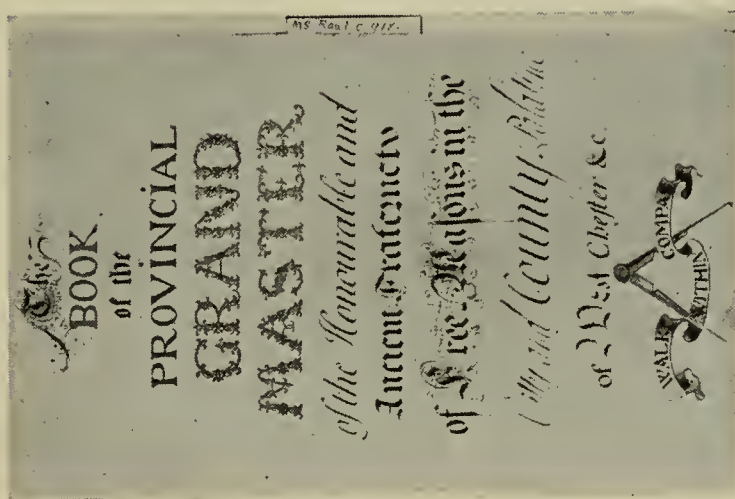 MS Rawl C 918.
The
BOOK
of the
PROVINCIAL
GRAND
MASTER
of the Honourable and
Ancient Fraternity
of Free-Masons in the
City and County Palatine
of West Chester &c.
WALK WITHIN COMPA